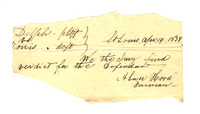 Delph. pltff
vs
Louis. deft
St Louis Apr 19. 1838
We the Jury find
verdict for the Defendant
Alvan Hood
Foreman